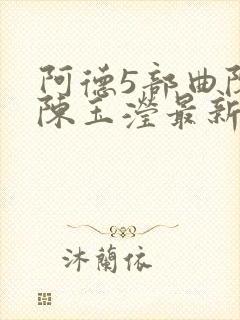 阿德5部曲
陈玉滢最新
沐蘭依